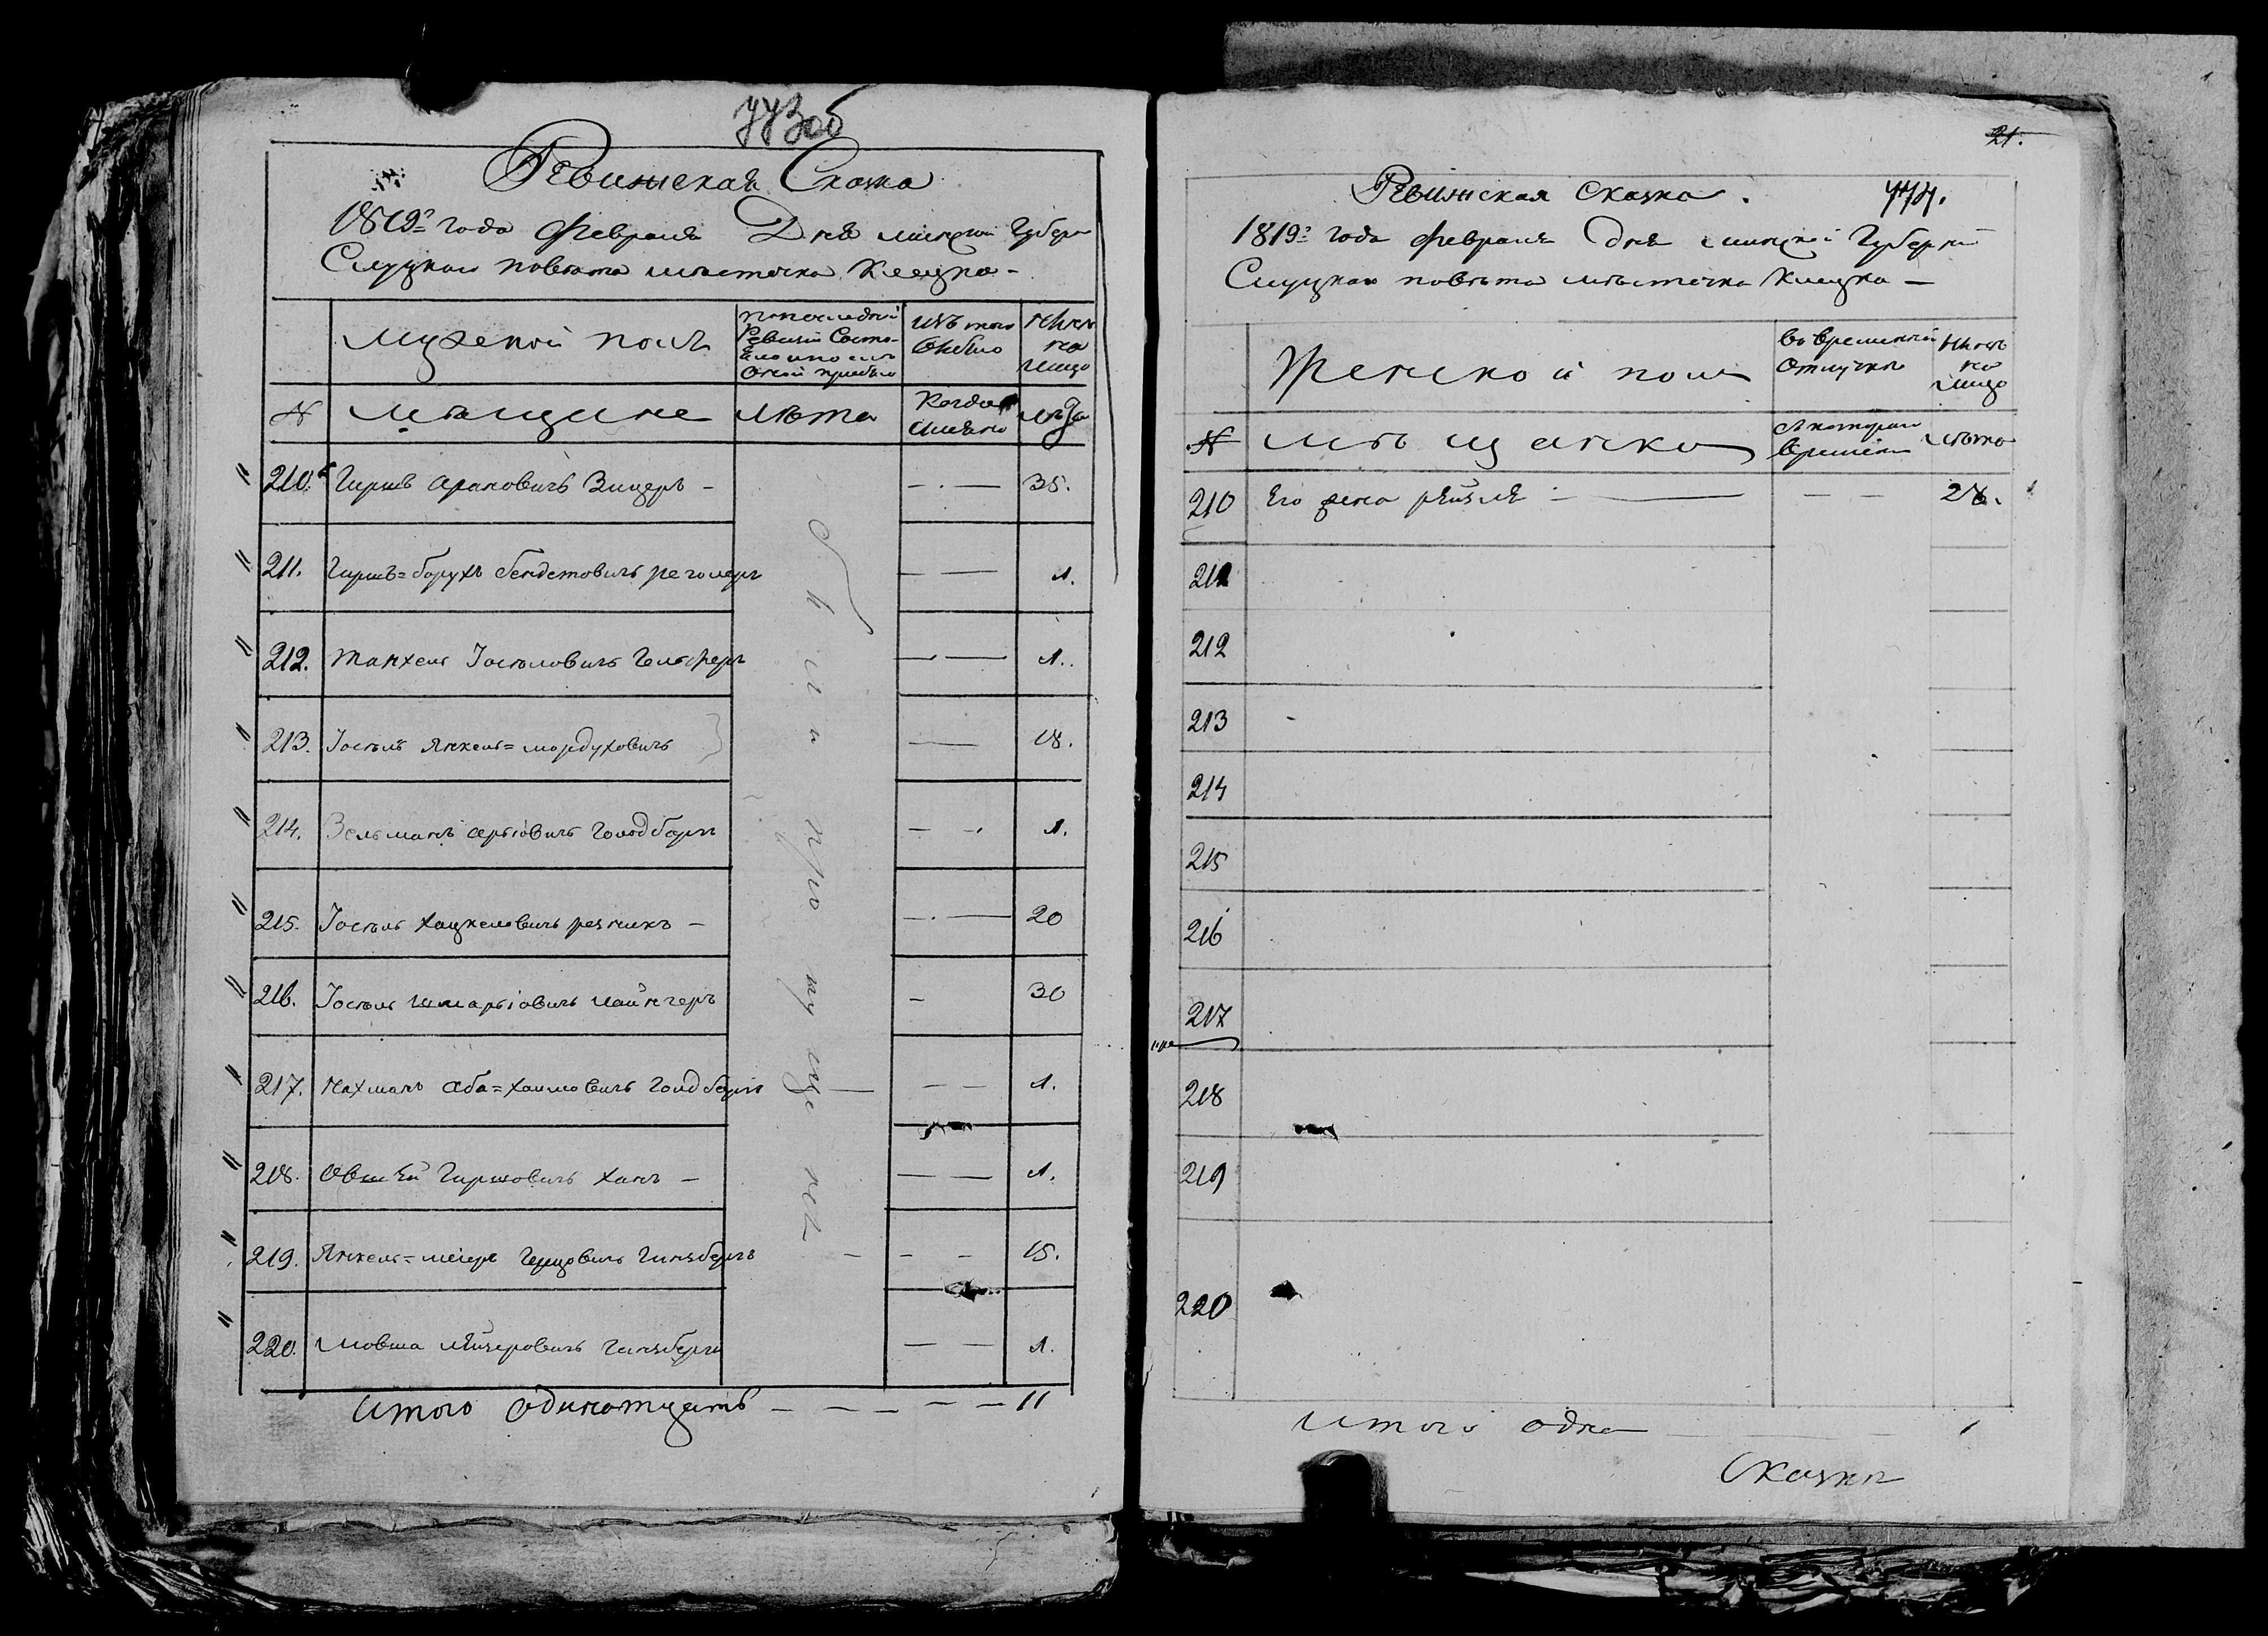 773об
Ревижская Сказка
1819го года Февраля Дня Минской Губерн
Слуцкаго повѣта мѣстечка Клецка -
Мужеской полъ
по последней Ревизии Состояло и после оной прибыло
изъ того Выбыло
Ныне на лицо
№ Мѣщане Лѣта Когда имянно Лѣта
210. Гиршъ Ароновичъ Вицеръ - 35.
211. Гиршъ=борухъ бендетовичъ 1.
212. Танхель Іоселовичъ 1.
213. Іосель Янкель=мордуховичъ 18.
214. Зельманъ арьіовичъ голдбергъ 1.
215. Іосель хацкелевичъ резникъ - 20
216. Іосель шмарьіовичъ 30
217. Нахманъ аба=хаимовичъ голдбергъ 1.
218. Овшей Гиршовичъ Ханъ - 1.
219. Янкель=меіеръ Герцовичъ Гинзбергъ 15.
220. Мовша Мейеровичъ Гинзбергъ 1.
были пропущены
итого одинатцать - - - - - 11
21.
Ревижская Сказка. 774.
1819го года Февраля дня Минской Губернии
Слуцкаго повѣта мѣстечка Клецка -
Женской полъ
Во временной отлучке
Ныне на лицо
№ Мѣщанки
Съ котораго времени
лѣта
210 Его жена рейзля 28.
211
212
213
214
215
216
217
218
219
220
итого одна 1
Сказки